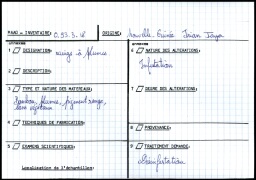 MARQ - INVENTAIRE: 0.93.3.18 ORIGINE: Nouvelle Guinée Irian Jaya
ANNEXES ANNEXES
1 DESIGNATION: à plumes
2 DESCRIPTION:
3 TYPE ET NATURE DES MATERIAUX:
Bambou, plumes, pigment rouge,
4 TECHNIQUES DE FABRICATION:
5 EXAMENS SCIENTIFIQUES:
Localisation de l'échantillon:
6 NATURE DES ALTERATIONS:
Infestation
7 DEGRE DES ALTERATIONS:
8 PROVENANCE:
9 TRAITEMENT DEMANDE:
Désinfestation